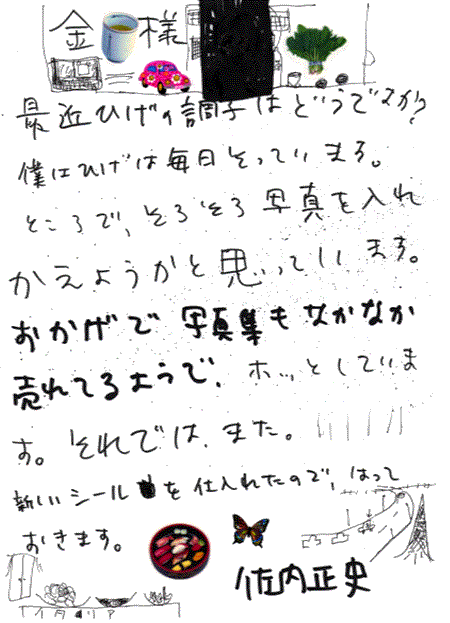 金 様
最近ひげの調子はどうですか?
僕はひげは毎日そっています。
ところで、そろそろ写真を入れ
かえようかと思っています。
おかげで写真集もなかなか
売れてるようで、ホッとしていま
す。それでは、また。
新しいシールを仕入れたので、はって
おきます。
佐内正史
イタリア